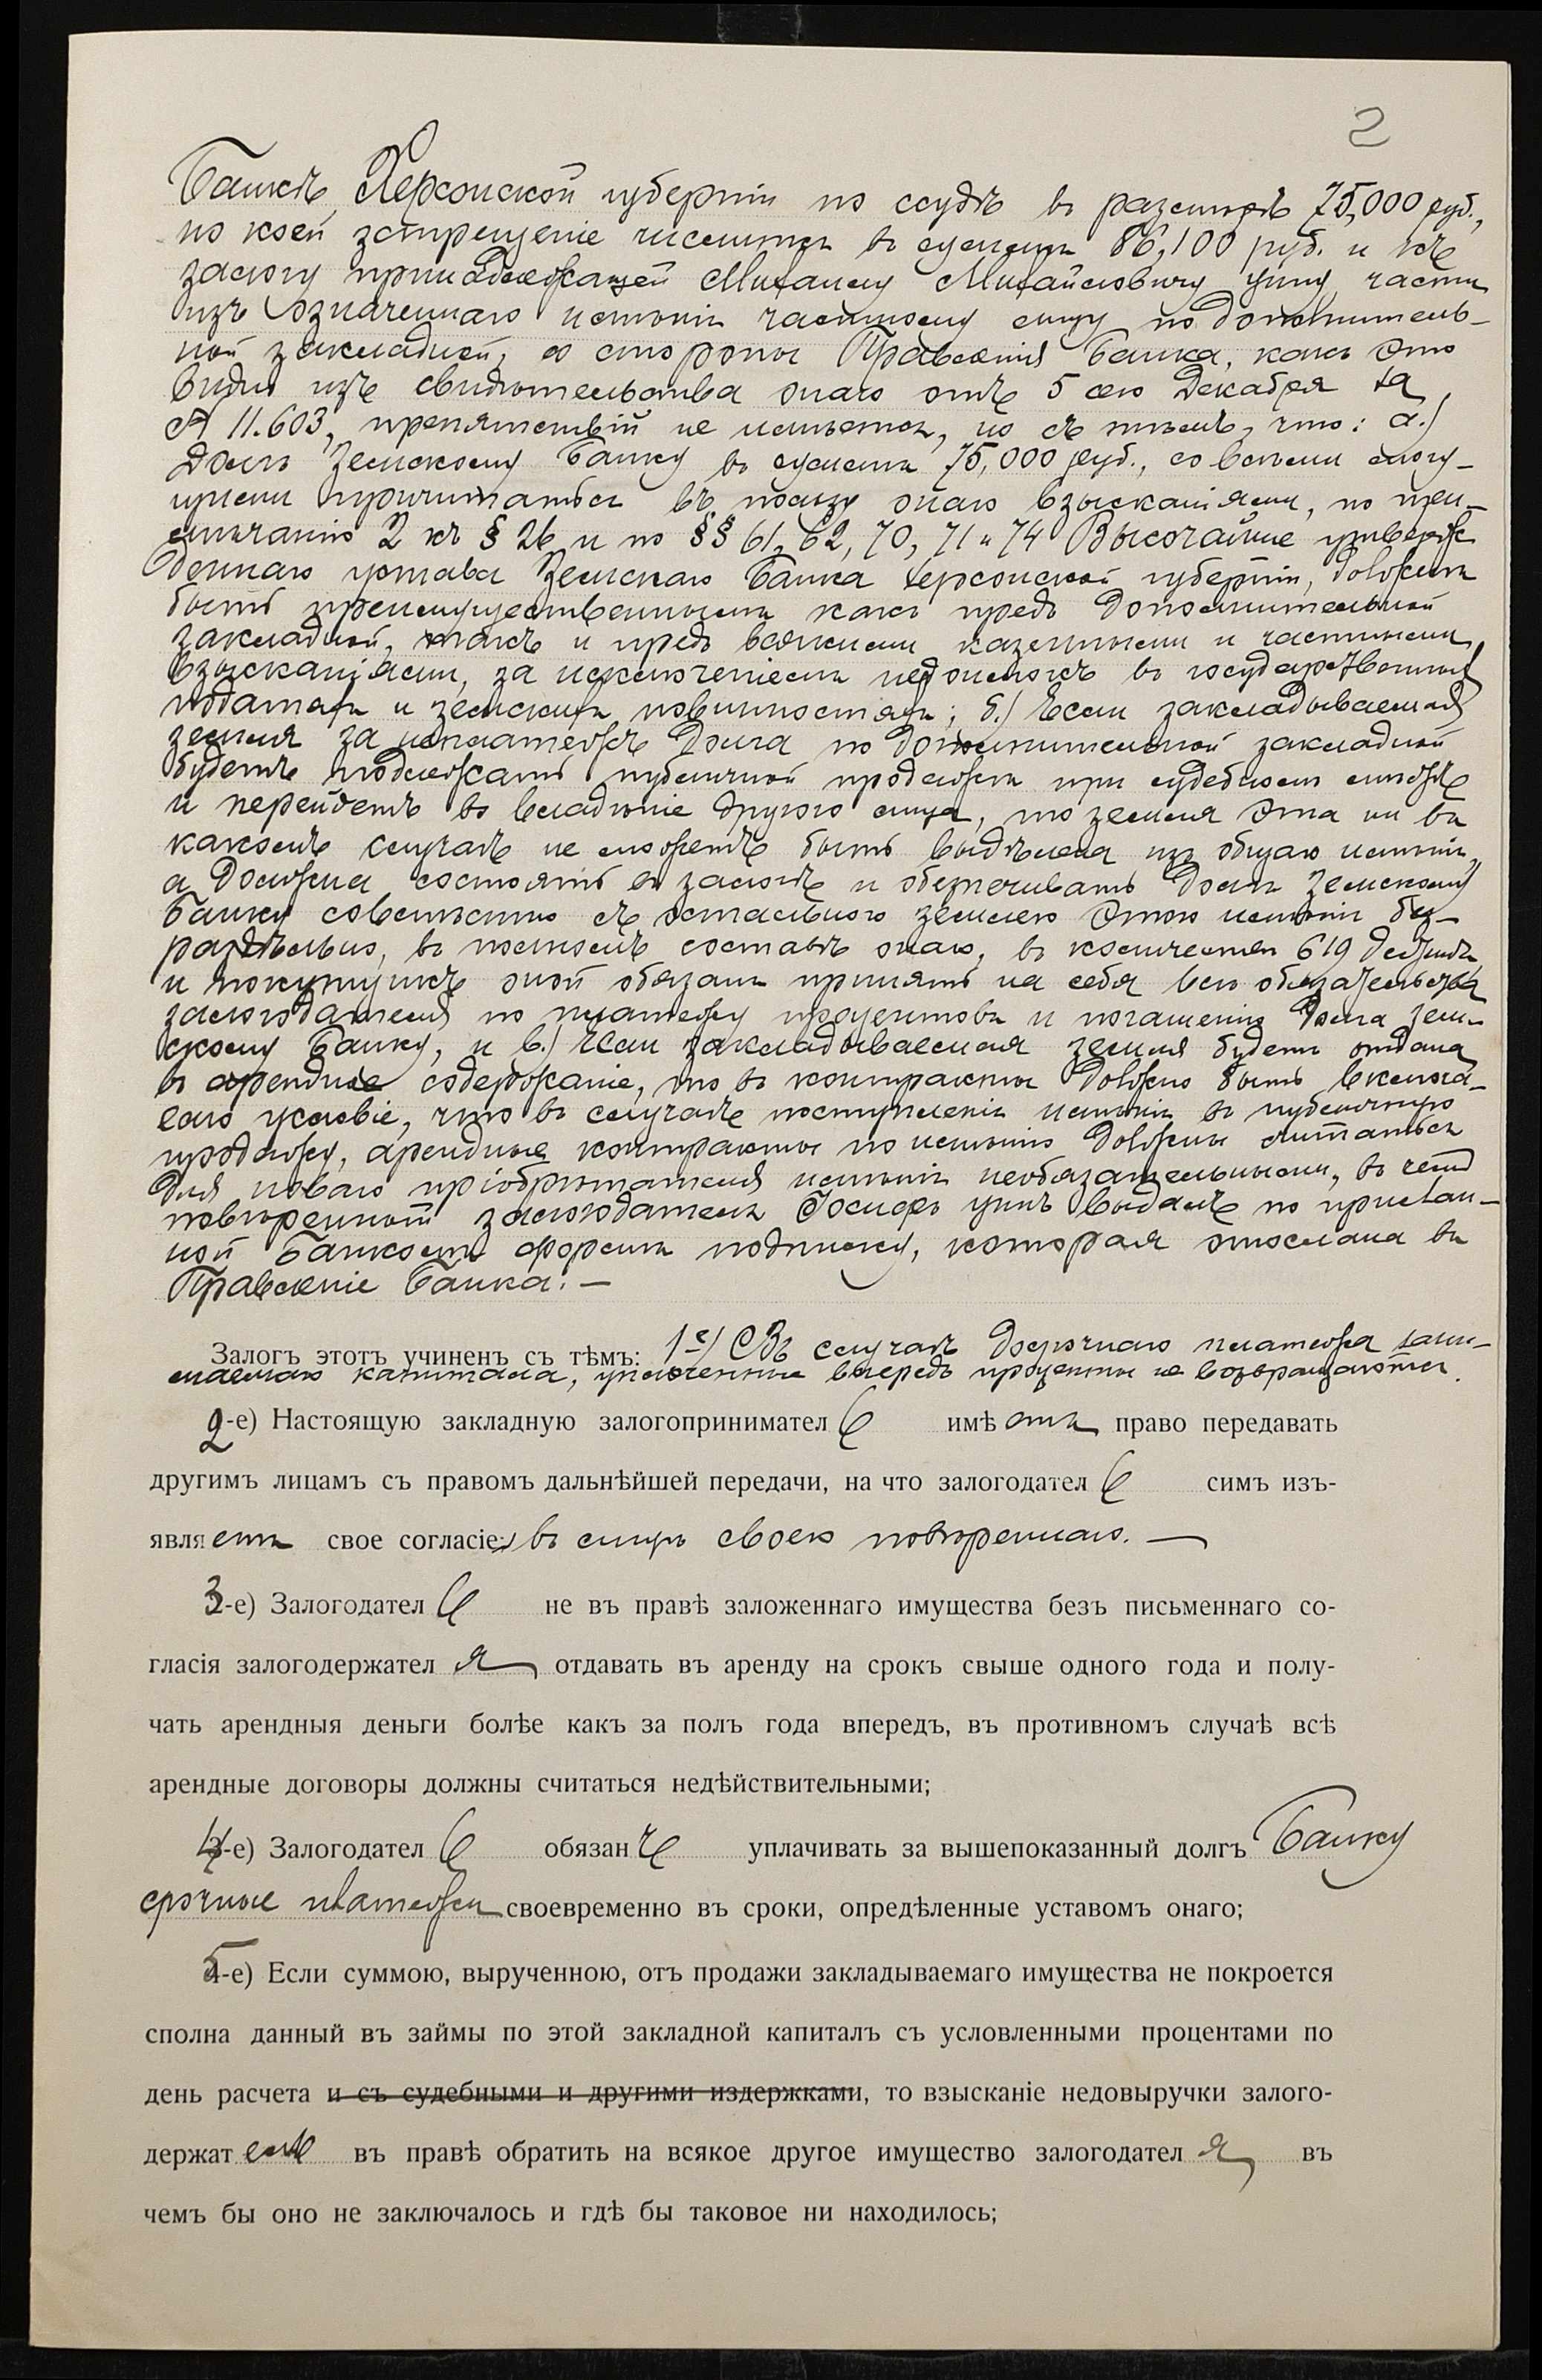 2
Банкѣ Херсонской губерніи по ссудѣ въ размѣрѣ 75,000 руб.,
по коей запрещеніе числится въ суммѣ 86,100 руб. и къ
залогу принадлежащей Михаилу Михайловичу части
изъ означеннаго имѣнія частному лицу по дополнитель-
ной закладной, со стороны Правленія Банка, какъ это
видно изъ свидѣтельства онаго отъ 5 сего Декабря за
№ 11.603, препятствій не имѣется, но съ тѣмъ, что: а.)
долгъ Земскому Банку въ суммѣ 75,000 руб., со всѣми могу-
щими причитаться въ пользу онаго взысканіями, по при-
мѣчанію 2 къ § 26 и по §§ 61, 62, 70, 71 и 74 Высочайше утверж-
деннаго устава Земскаго Банка Херсонской губерніи, долженъ
быть преимущественнымъ какъ предъ дополнительной
закладной, такъ и предъ всякими казенными и частными
взысканіями, за исключеніемъ недоимокъ въ государственныхъ
податяхъ и земскихъ повинностяхъ; б.) Если закладываемая
земля за неплатежъ долга по дополнительной закладной
будетъ подлежать публичной продажѣ при судебномъ мѣстѣ
и перейдетъ во владѣніе другого лица, то земля эта ни въ
какомъ случаѣ не можетъ быть выдѣлена изъ общаго имѣнія,
а должна состоять въ залогѣ и обезпечивать долгъ Земскому
Банку совмѣстно съ остальною землею этого имѣнія без-
раздѣльно, въ полномъ составѣ онаго, въ количествѣ 619 десятинъ
и покупщикъ оной обязанъ принять на себя всѣ обязательства
залогодателя по платежу процентовъ и погашенію долга Зем-
скому Банку, и в.) Если закладываемая земля будетъ отдана
въ арендное содержаніе, то въ контракты должно быть включа-
емо условіе, что въ случаѣ поступленія имѣнія въ публичную
продажу, арендные контракты по имѣнію должны считаться
для новаго пріобрѣтателя имѣнія необязательными, въ чемъ
повѣренный залогодателя Іосифъ выдалъ по прислан-
ной Банкомъ формѣ подписку, которая отослана въ
Правленіе Банка. —
Залогъ этотъ учиненъ съ тѣмъ: 1-е) Въ случаѣ досрочнаго платежа зани-
маемаго капитала, уплоченные впередъ проценты не возвращаются.
2-е) Настоящую закладную залогопринимател ь имѣ етъ право передавать
другимъ лицамъ съ правомъ дальнѣйшей передачи, на что залогодател ь симъ изъ-
явля етъ свое согласіе; въ лицѣ своего повѣреннаго. —
3-е) Залогодател ь не въ правѣ заложеннаго имущества безъ письменнаго со-
гласія залогодержател я отдавать въ аренду на срокъ свыше одного года и полу-
чать арендныя деньги болѣе какъ за полъ года впередъ, въ противномъ случаѣ всѣ
арендные договоры должны считаться недѣйствительными;
4-е) Залогодател ь обязан ъ уплачивать за вышепоказанный долгъ Банку
срочные платежи своевременно въ сроки, опредѣленные уставомъ онаго;
5-е) Если суммою, вырученною, отъ продажи закладываемаго имущества не покроется
сполна данный въ займы по этой закладной капиталъ съ условленными процентами по
день расчета и съ судебными и другими издержками, то взысканіе недовыручки залого-
держат ель въ правѣ обратить на всякое другое имущество залогодател я въ
чемъ бы оно не заключалось и гдѣ бы таковое ни находилось;